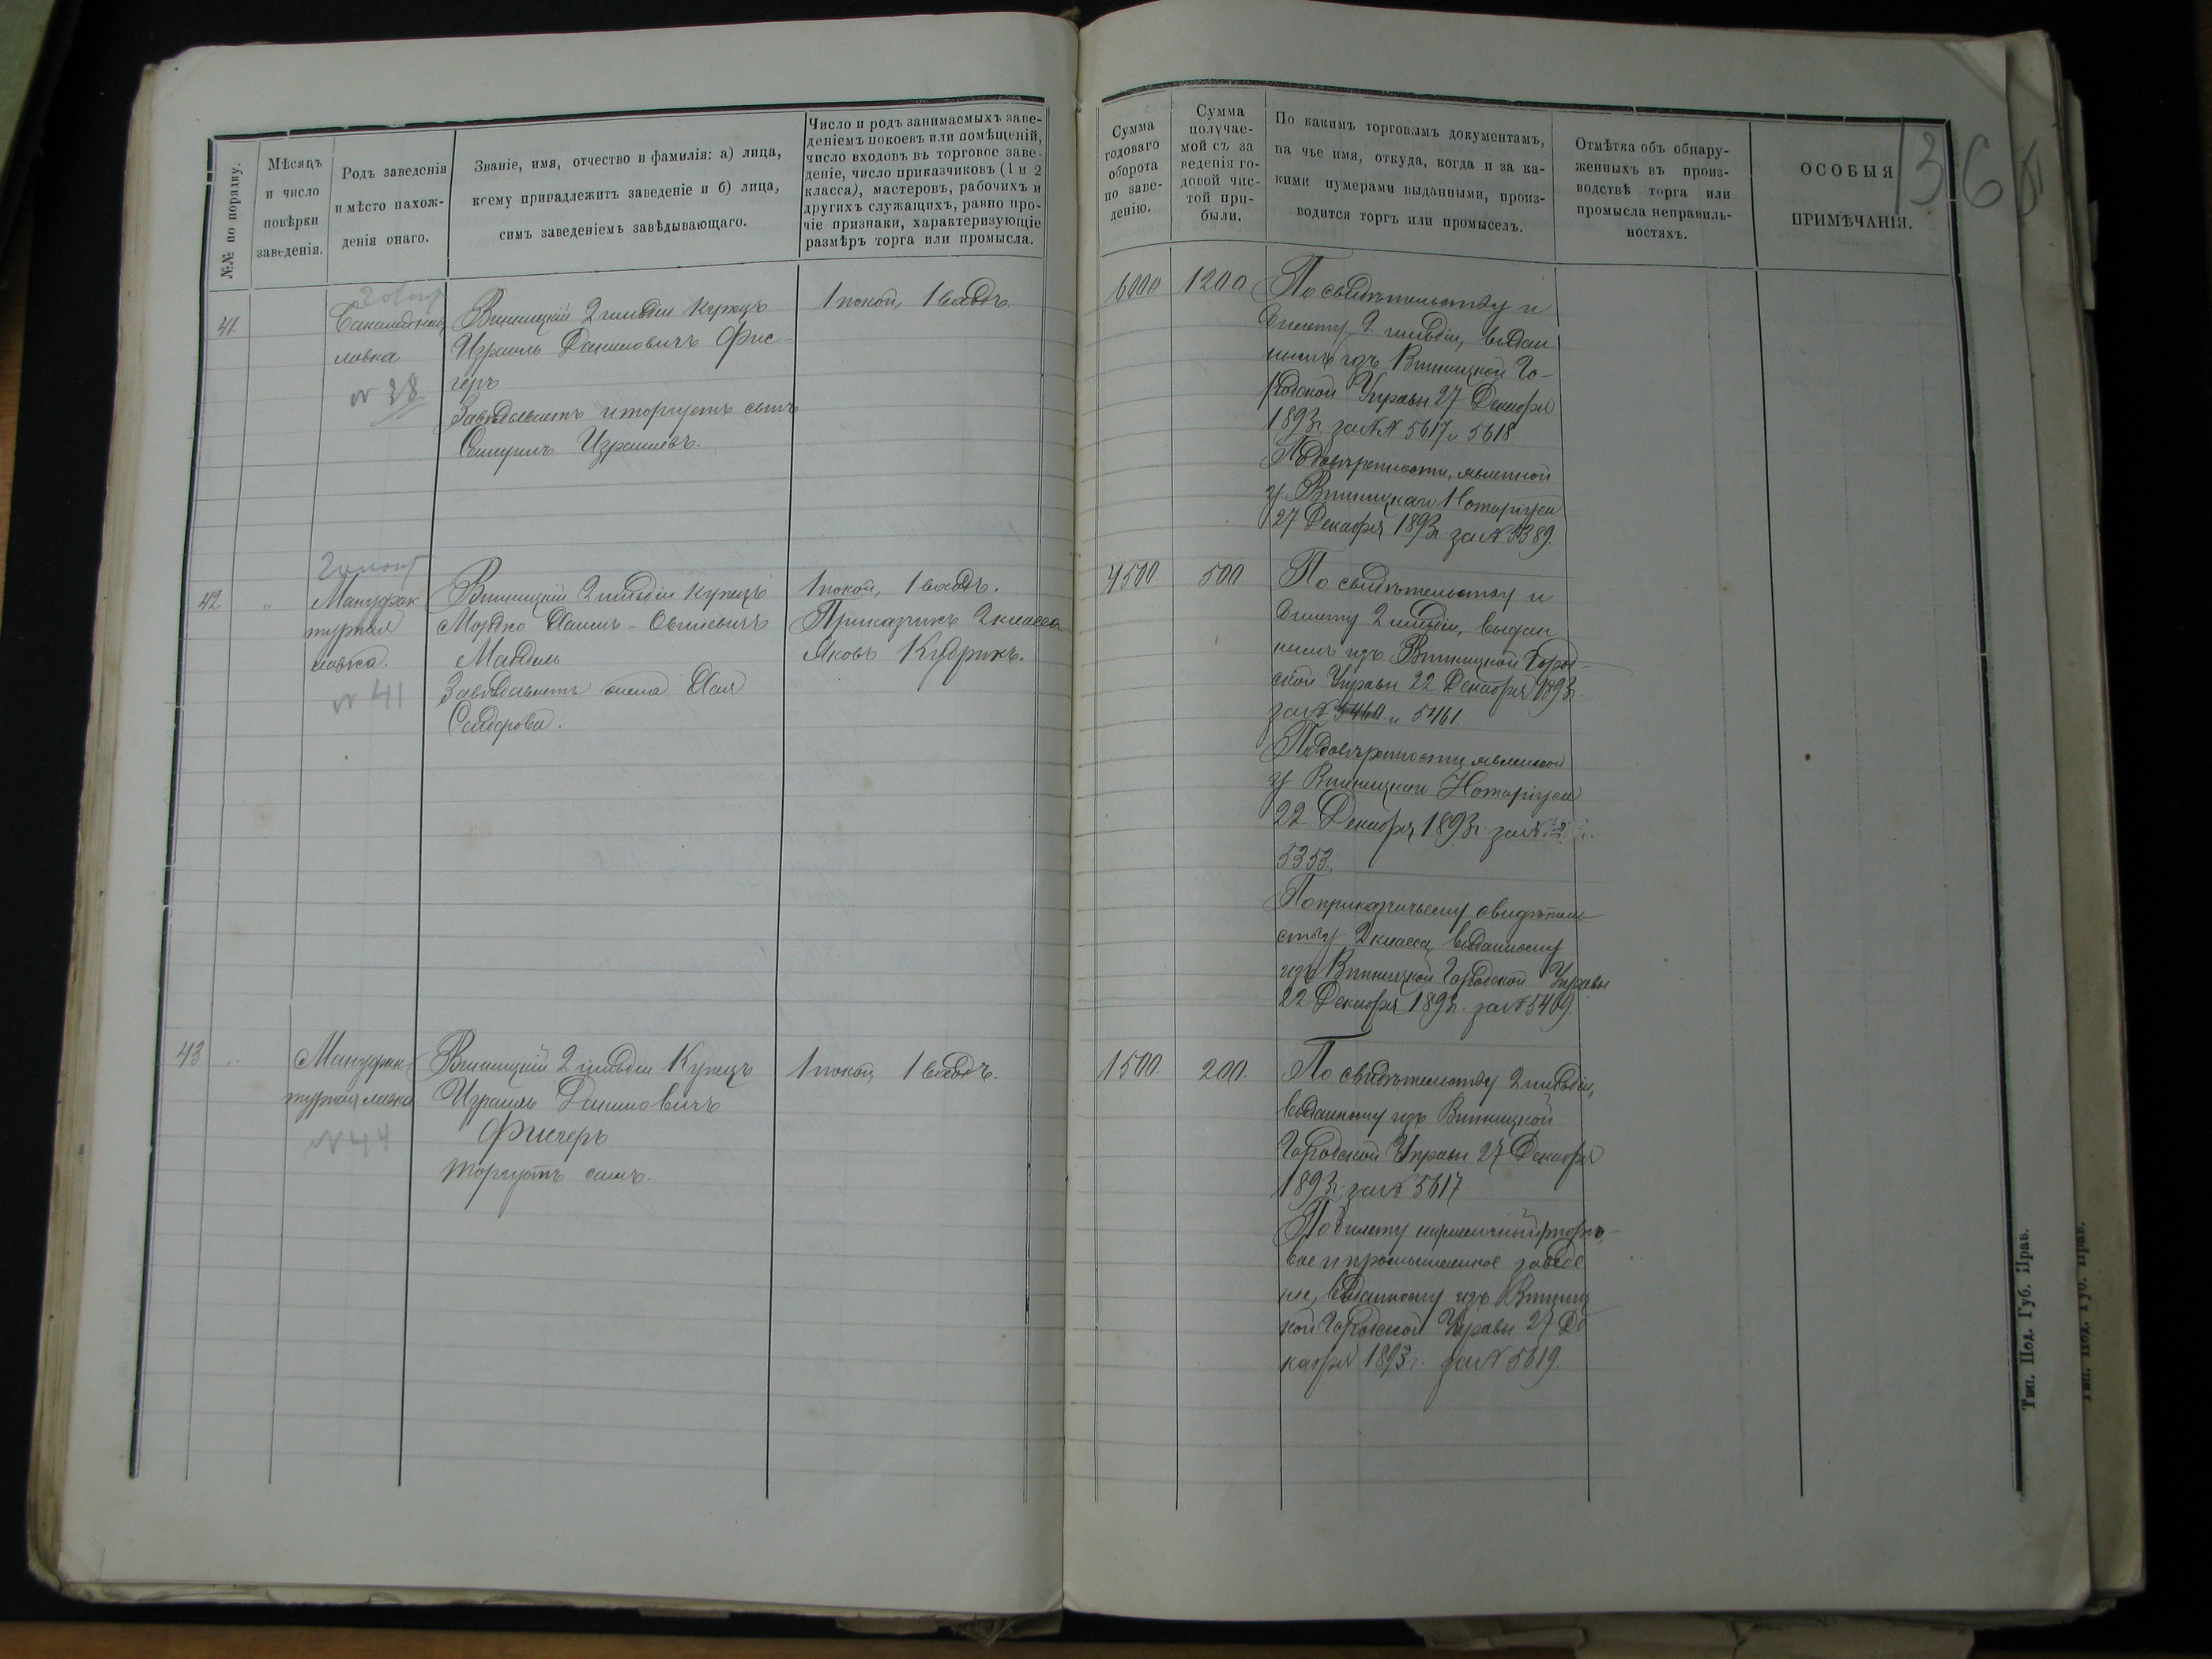 №№ по порядку.
Мѣсяцъ
и число
повѣрки
заведенія.
Родъ заведенія
и мѣсто нахож-
денія онаго.
Званіе, имя, отчество и фамилія: а) лица,
коему принадлежитъ заведеніе и б) лица,
симъ заведеніемъ завѣдывающаго.
Число и родъ занимаемыхъ заве-
деніемъ покоевъ или помѣщеній,
число входовъ въ торговое заве-
деніе, число приказчиковъ (1 и 2
класса), мастеровъ, рабочихъ и
другихъ служащихъ, равно про-
чіе признаки, характеризующіе
размѣръ торга или промысла.
Сумма
годоваго
оборота
по заве-
денію.
Сумма
получае-
мой съ за
веденія го-
довой чис-
той при-
были.
По какимъ торговымъ документамъ,
на чье имя, откуда, когда и за ка-
кими нумерами выданнымъ, произ-
водится торгъ или промыселъ.
Отмѣтка объ обнару-
женныхъ въ произ-
водствѣ торга или
промысла неправиль-
ностяхъ.
ОСОБЫЯ
ПРИМѢЧАНІЯ.
136
41.
Бакалейная
лавка
№ 38
Винницкій 2 гильдіи Купецъ
Израиль Даниловичъ Фис-
геръ
Завѣдываетъ и торгуетъ сынъ
Самуилъ Израилевъ.
1 покой, 1 входъ.
6000
1200
По свидѣтельству и
билету 2 гильдіи, выдан
нымъ изъ Винницкой Го-
родской Управы 27 Декабря
1893 г. за №№ 5617 и 5618.
По довѣренности, явленной
у Винницкаго Нотаріуса
27 Декабря 1893 г. за № 5389.
42
"
Мануфак
турная
лавка.
№ 41
Винницкій 2 гильдіи Купецъ
Мордко Хаимъ-Овшіевичъ
Мандель
Завѣдываетъ жена Хая
Сендерова.
1 покой, 1 входъ.
Приказчикъ 2 класса
Яковъ Кудрикъ.
4500
500.
По свидѣтельству и
билету 2 гильдіи, выдан
нымъ изъ Винницкой Город-
ской Управы 22 Декабря 1893 г.
за № 5460 и 5461.
По довѣренности явленной
у Винницкаго Нотаріуса
22 Декабря 1893 г. за №
5353.
По приказчичьему свидѣтель
ству 2 класса, выданному
изъ Винницкой Городской Управы
22 Декабря 1893 г. за № 5409.
43
Мануфак
турная лавка
№ 44
Винницкій 2 гильдіи Купецъ
Израиль Даниловичъ
Фишеръ
торгуетъ самъ.
1 покой, 1 входъ.
1500.
200.
По свидѣтельству 2 гильдіи,
выданному изъ Винницкой
Городской Управы 27 Декабря
1893 г. за № 5617
По билету на мелочный торго-
вое и промышленное заведе
ніе, выданному изъ Винниц
кой Городской Управы 27 Де
кабря 1893 г. за № 5619.
Тип. Под. Губ. Прав.
Тип. Под. Губ. Прав.